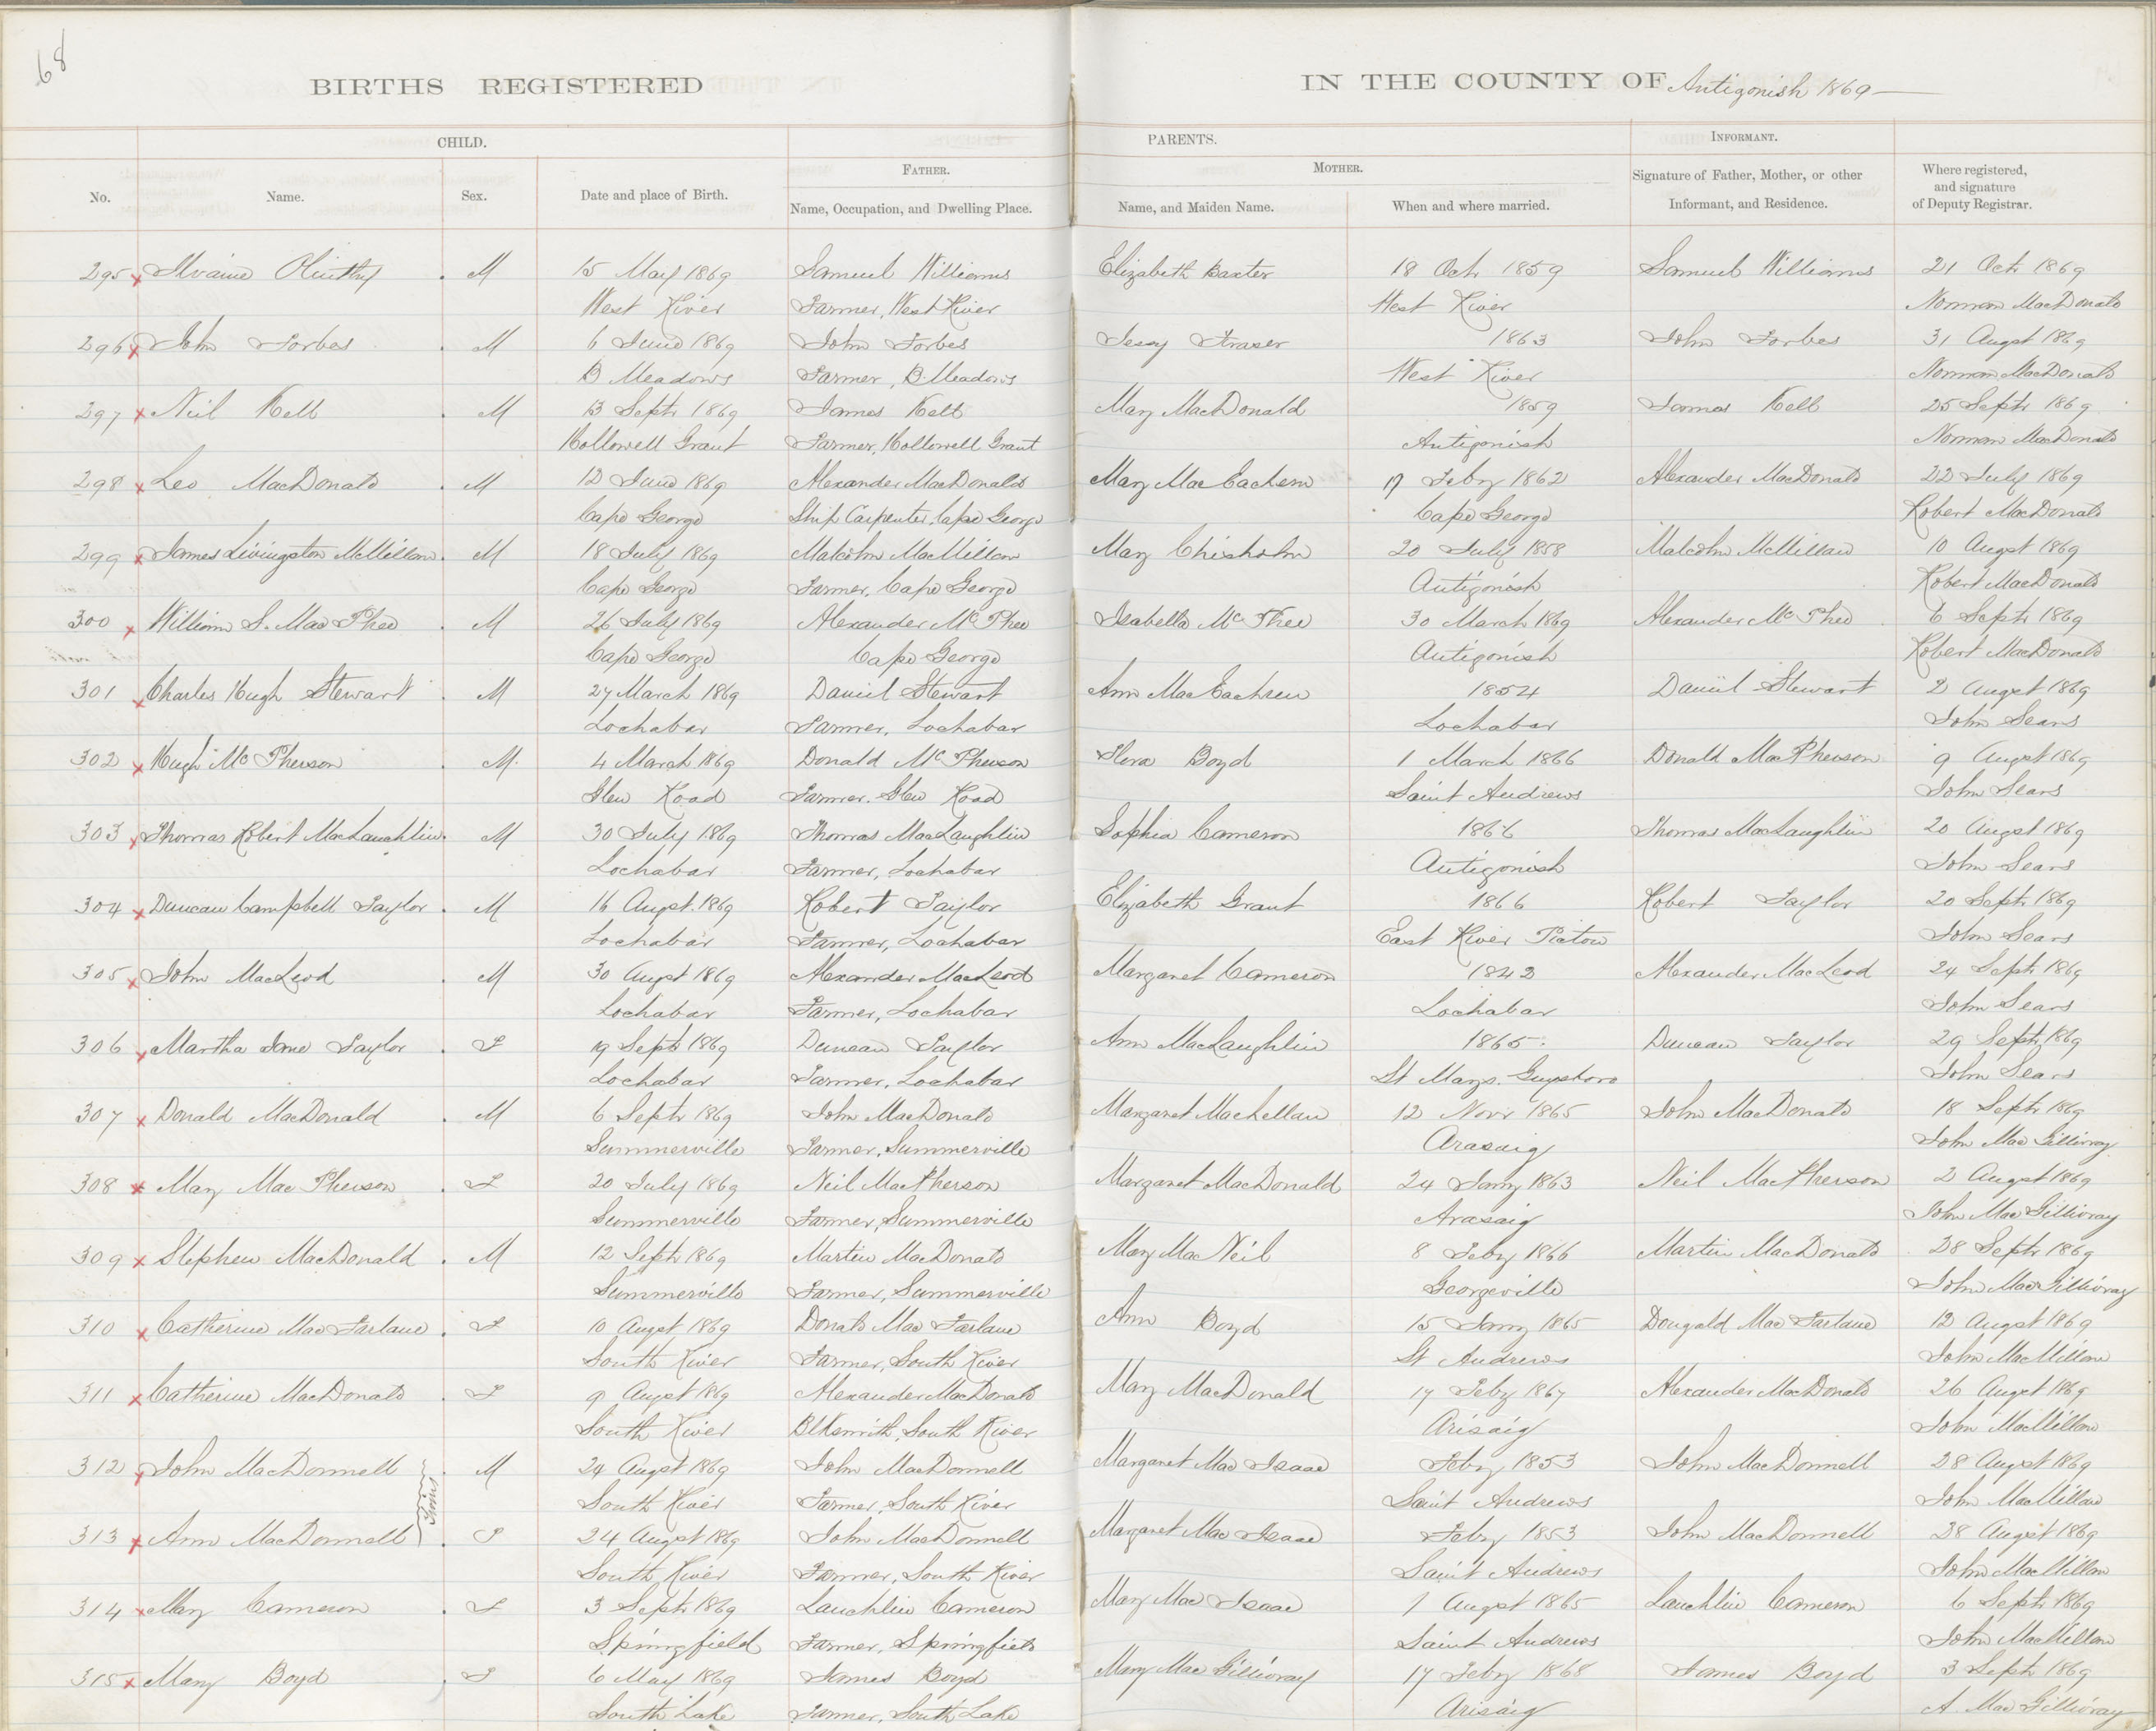 68
BIRTHS REGISTERED IN THE COUNTY OF Antigonish 1869
CHILD. PARENTS. INFORMANT.
FATHER. MOTHER.
No. Name. Sex. Date and place of Birth. Name, Occupation, and Dwelling Place. Name, and Maiden Name. When and where married. Signature of Father, Mother, or other Informant, and Residence. Where registered, and signature of Deputy Registrar.
295 x M 15 May 1869 Samuel Williams Elizabeth Baxter 18 Octr 1859 Samuel Williams 21 Octr 1869
West River Farmer, West River West River Norman MacDonald
296 x John Forbes M 6 June 1869 John Forbes Jessy Fraser 1863 John Forbes 31 Augst 1869
B Meadows Farmer, B. Meadows West River Norman MacDonald
297 x Neil Kell M 13 Septr 1869 James Kell Mary MacDonald 1859 James Kell 25 Septr 1869
Hollowell Grant Farmer, Hollowell Grant Antigonish Norman MacDonald
298 x Leo MacDonald M 12 June 1869 Alexander MacDonald Mary MacEachern 17 Feby 1862 Alexander MacDonald 22 July 1869
Cape George Ship Carpenter, Cape George Cape George Robert MacDonald
299 x James Livingston McMillan M 18 July 1869 Malcolm MacMillan Mary Chisholm 20 July 1858 Malcolm McMillan 10 Augst 1869
Cape George Farmer, Cape George Antigonish Robert MacDonald
300 x William S. MacPhee M 26 July 1869 Alexander McPhee Isabella McPhee 30 March 1869 Alexander McPhee 6 Septr 1869
Cape George Cape George Antigonish Robert MacDonald
301 x Charles Hugh Stewart M 27 March 1869 Daniel Stewart Ann MacEachren 1854 Daniel Stewart 2 Augst 1869
Lochabar Farmer, Lochabar Lochabar John Sears
302 x Hugh McPherson M. 4 March 1869 Donald McPherson Flora Boyd 1 March 1866 Donald MacPherson 9 Augst 1869
Glen Road Farmer. Glen Road Saint Andrews John Sears
303 x Thomas Robert MacLaughlin M 30 July 1869 Thomas MacLaughlin Sophia Cameron 1866 Thomas MacLaughlin 20 Augst 1869
Lochabar Farmer, Lochabar Antigonish John Sears
304 x Duncan Campbell Taylor M 16 Augst. 1869 Robert Taylor Elizabeth Grant 1866 Robert Taylor 20 Septr 1869
Lochabar Farmer, Lochabar East River Pictou John Sears
305 x John MacLeod M 30 Augst 1869 Alexander MacLeod Margaret Cameron 1843 Alexander MacLeod 24 Septr 1869
Lochabar Farmer, Lochabar Lochabar John Sears
306 x Martha Jane Taylor F 19 Septr 1869 Duncan Taylor Ann MacLaughlin 1865 Duncan Taylor 29 Septr 1869
Lochabar Farmer, Lochabar St Marys. Guysboro John Sears
307 x Donald MacDonald M 6 Septr 1869 John MacDonald Margaret MacLellan 12 Novr 1865 John MacDonald 18 Septr 1869
Summerville Farmer, Summerville Arasaig John MacGillivray
308 x Mary MacPherson F 20 July 1869 Neil MacPherson Margaret MacDonald 24 Jany 1863 Neil MacPherson 2 Augst 1869
Summerville Farmer, Summerville Arasaig John MacGillivray
309 x Stephen MacDonald M 12 Septr 1869 Martin MacDonald Mary MacNeil 8 Feby 1866 Martin MacDonald 28 Septr 1869
Summerville Farmer, Summerville Georgeville John MacGillivray
310 x Catherine MacFarlane F 10 Augst 1869 Donald MacFarlane Ann Boyd 15 Jany 1865 Dougald MacFarlane 12 Augst 1869
South River Farmer, South River St Andrews John MacMillan
311 x Catherine MacDonald F 9 Augst 1869 Alexander MacDonald Mary MacDonald 17 Feby 1867 Alexander MacDonald 26 Augst 1869
South River Blksmith, South River Arisaig John MacMillan
312 x John MacDonnell M 24 Augst 1869 John MacDonnell Margaret MacIsaac Feby 1853 John MacDonnell 28 Augst 1869
Twins
South River Farmer, South River Saint Andrews John MacMillan
313 x Ann MacDonnell F 24 Augst 1869 John MacDonnell Margaret MacIsaac Feby 1853 John MacDonnell 28 Augst 1869
South River Farmer, South River Saint Andrews John MacMillan
314 x Mary Cameron F 3 Septr 1869 Lauchlin Cameron Mary MacIsaac 1 Augst 1865 Lauchlin Cameron 6 Septr 1869
Springfield Farmer, Springfield Saint Andrews John MacMillan
315 x Mary Boyd F 6 May 1869 James Boyd Mary MacGillivray 17 Feby 1868 James Boyd 3 Septr 1869
South Lake Farmer, South Lake Arisaig A. MacGillivray